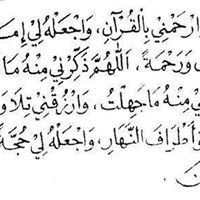 ارْحَمْنِي بِالْقُرْآنِ، وَاجْعَلْهُ لِي إِمَا
وَرَحْمَةً، اَللّٰهُمَّ ذَكِّرْنِي مِنْهُ مَا
مِنْهُ مَا جَهِلْتُ، وَارْزُقْنِي تِلَاوَ
وَأَطْرَافَ النَّهَارِ، وَاجْعَلْهُ لِي حُجَّةً